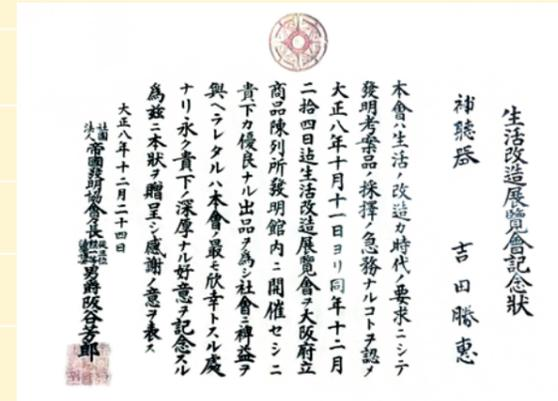 生活改造展覽會記念狀
補聽器 吉田勝惠
本會ハ生活ノ改造カ時代ノ要求ニシテ
發明考案品ノ採擇ノ急務ナルコトヲ認メ
大正八年十月十一日ヨリ同年十二月
二拾四日迠生活改造展覽會ヲ大阪府立
商品陳列所發明館内ニ開催セシニ
貴下カ優良ナル出品ヲ為シ社會ニ裨益ヲ
與ヘラレタルハ本會ノ最モ欣幸トスル處
ナリ永ク貴下ノ深厚ナル好意ヲ記念スル
為茲ニ本狀ヲ贈呈シ感謝ノ意ヲ表ス
大正八年十二月二十四日
社團法人帝國發明協會會長男爵阪谷芳郎